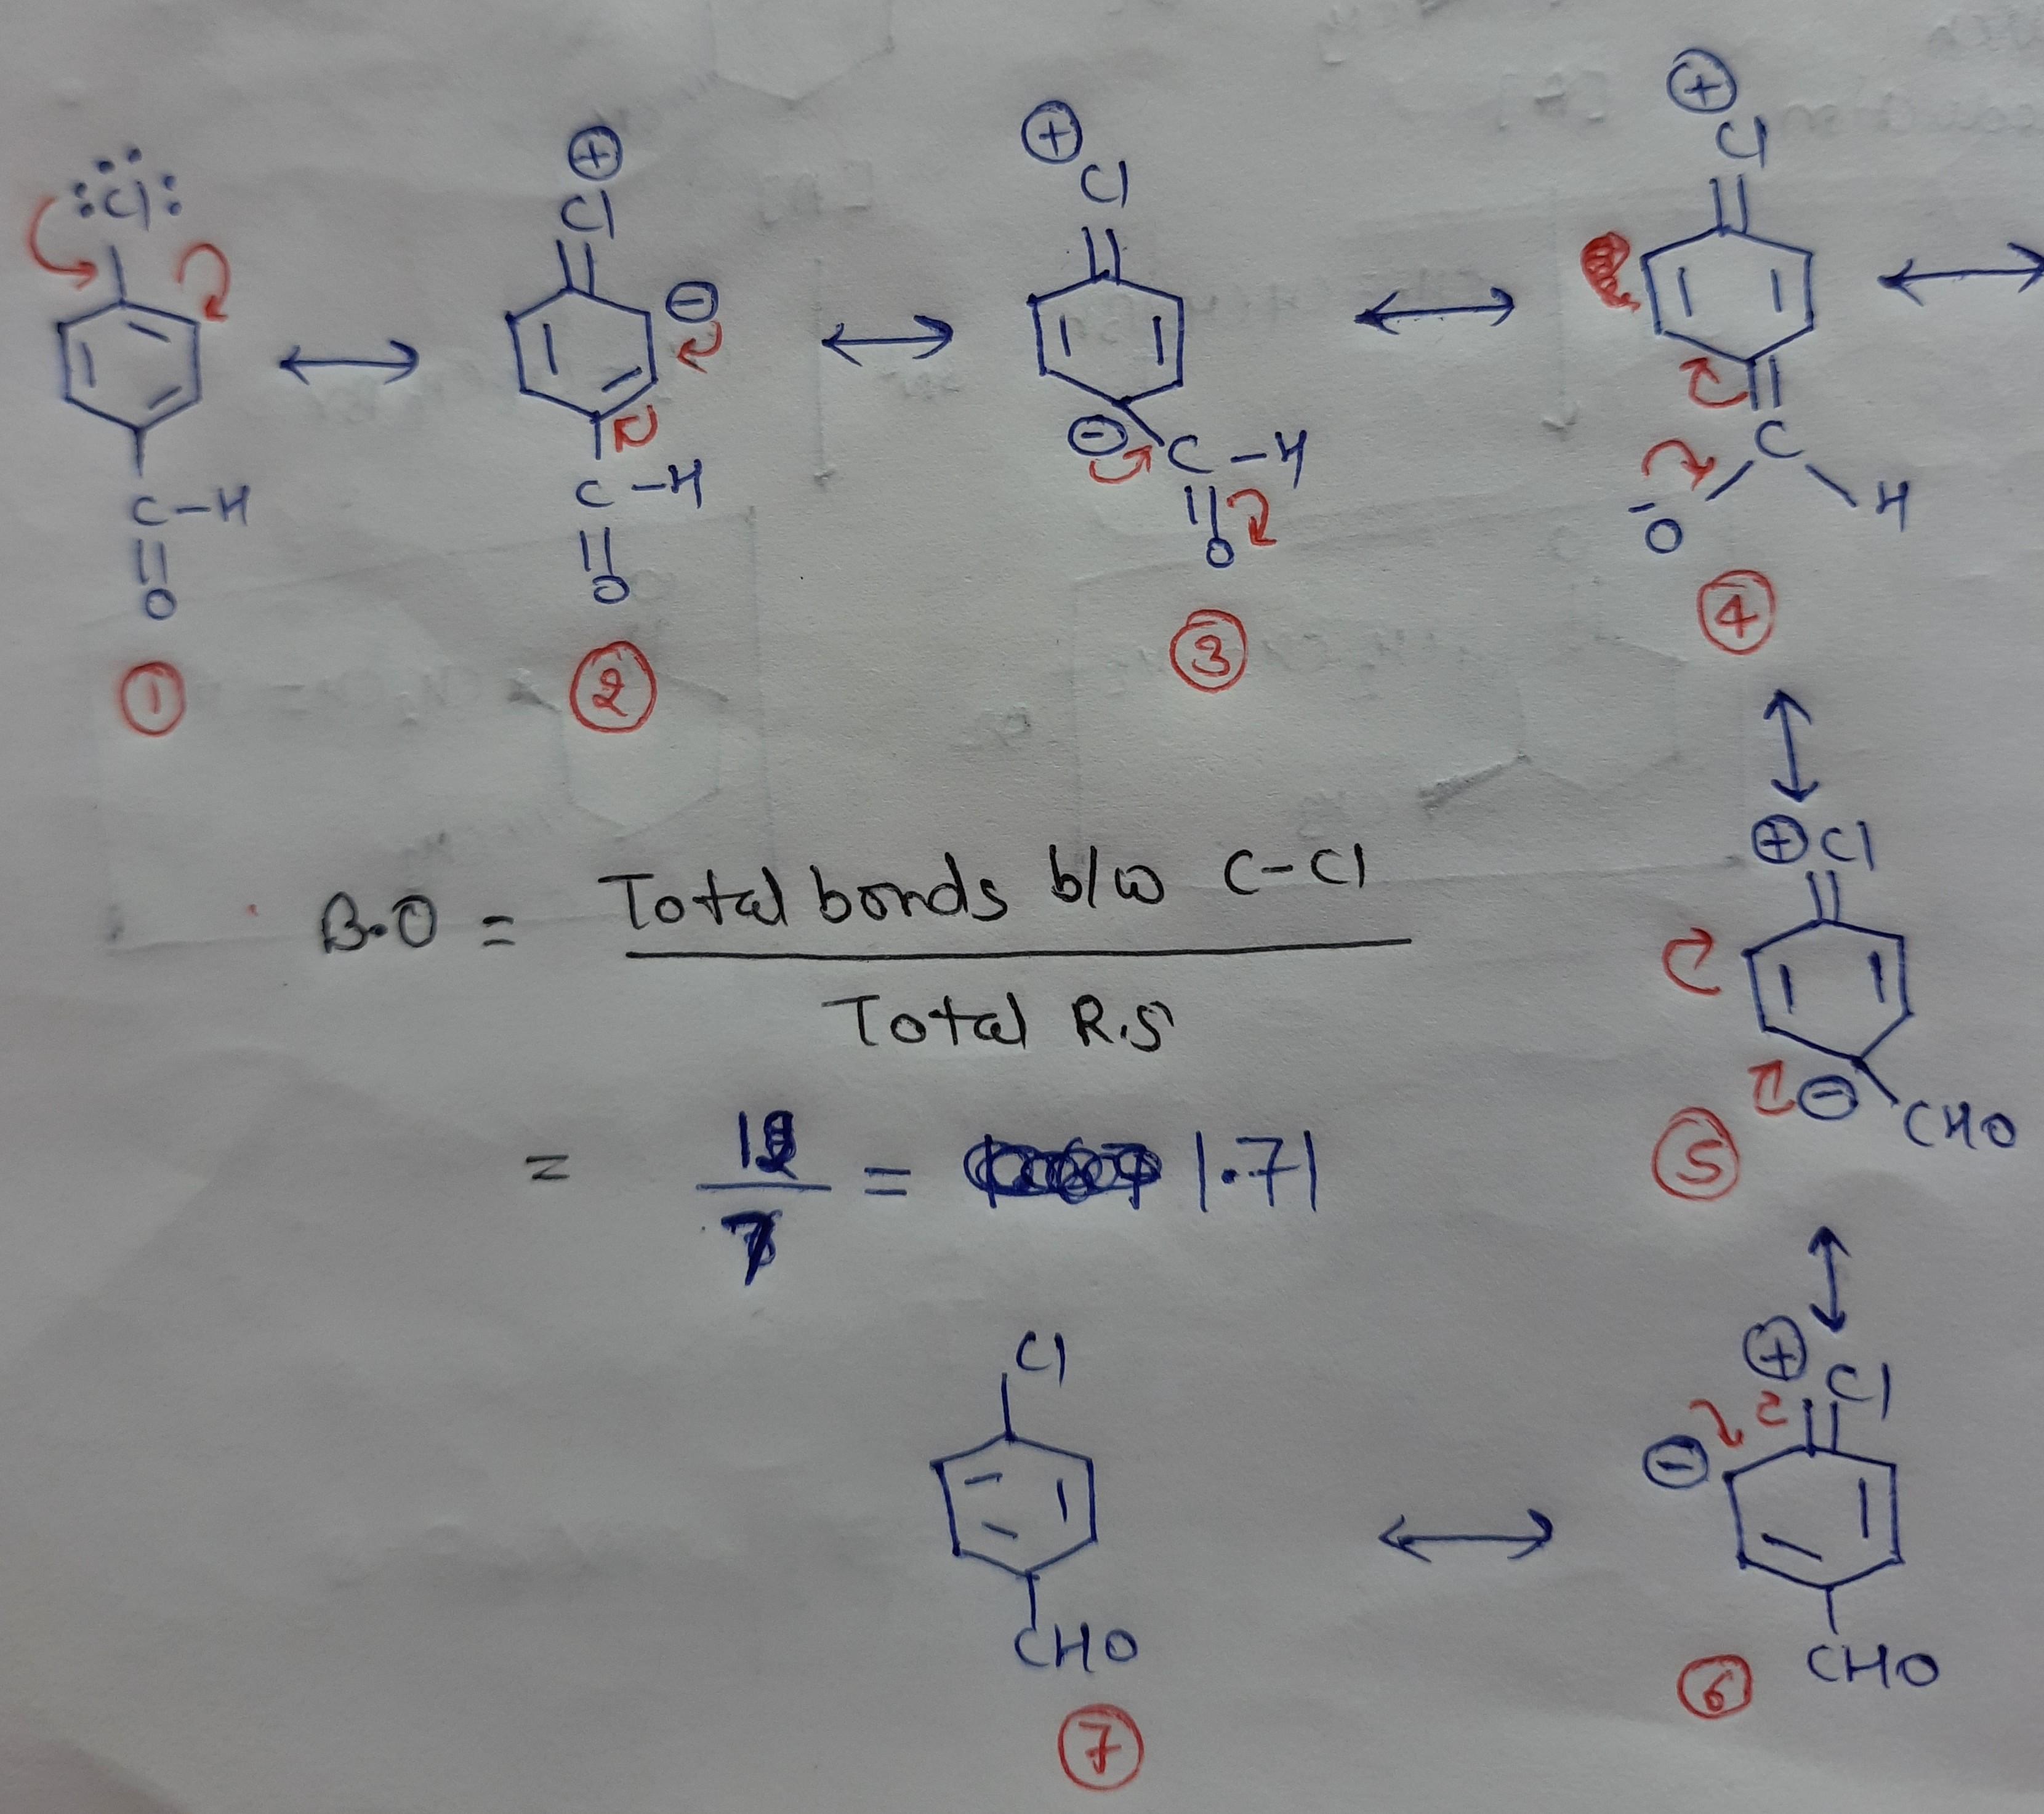 :Cl:
C-H
O
①
⊕
Cl
⊖
C-H
O
②
⊕
Cl
⊖ C-H
O
③
⊕
Cl
C
-O H
④
B.O = Total bonds b/w C-Cl
Total R.S
= 12
7 = 1.71
⊕ Cl
⊖
CHO
⑤
⊕
Cl
⊖
CHO
⑥
Cl
CHO
⑦